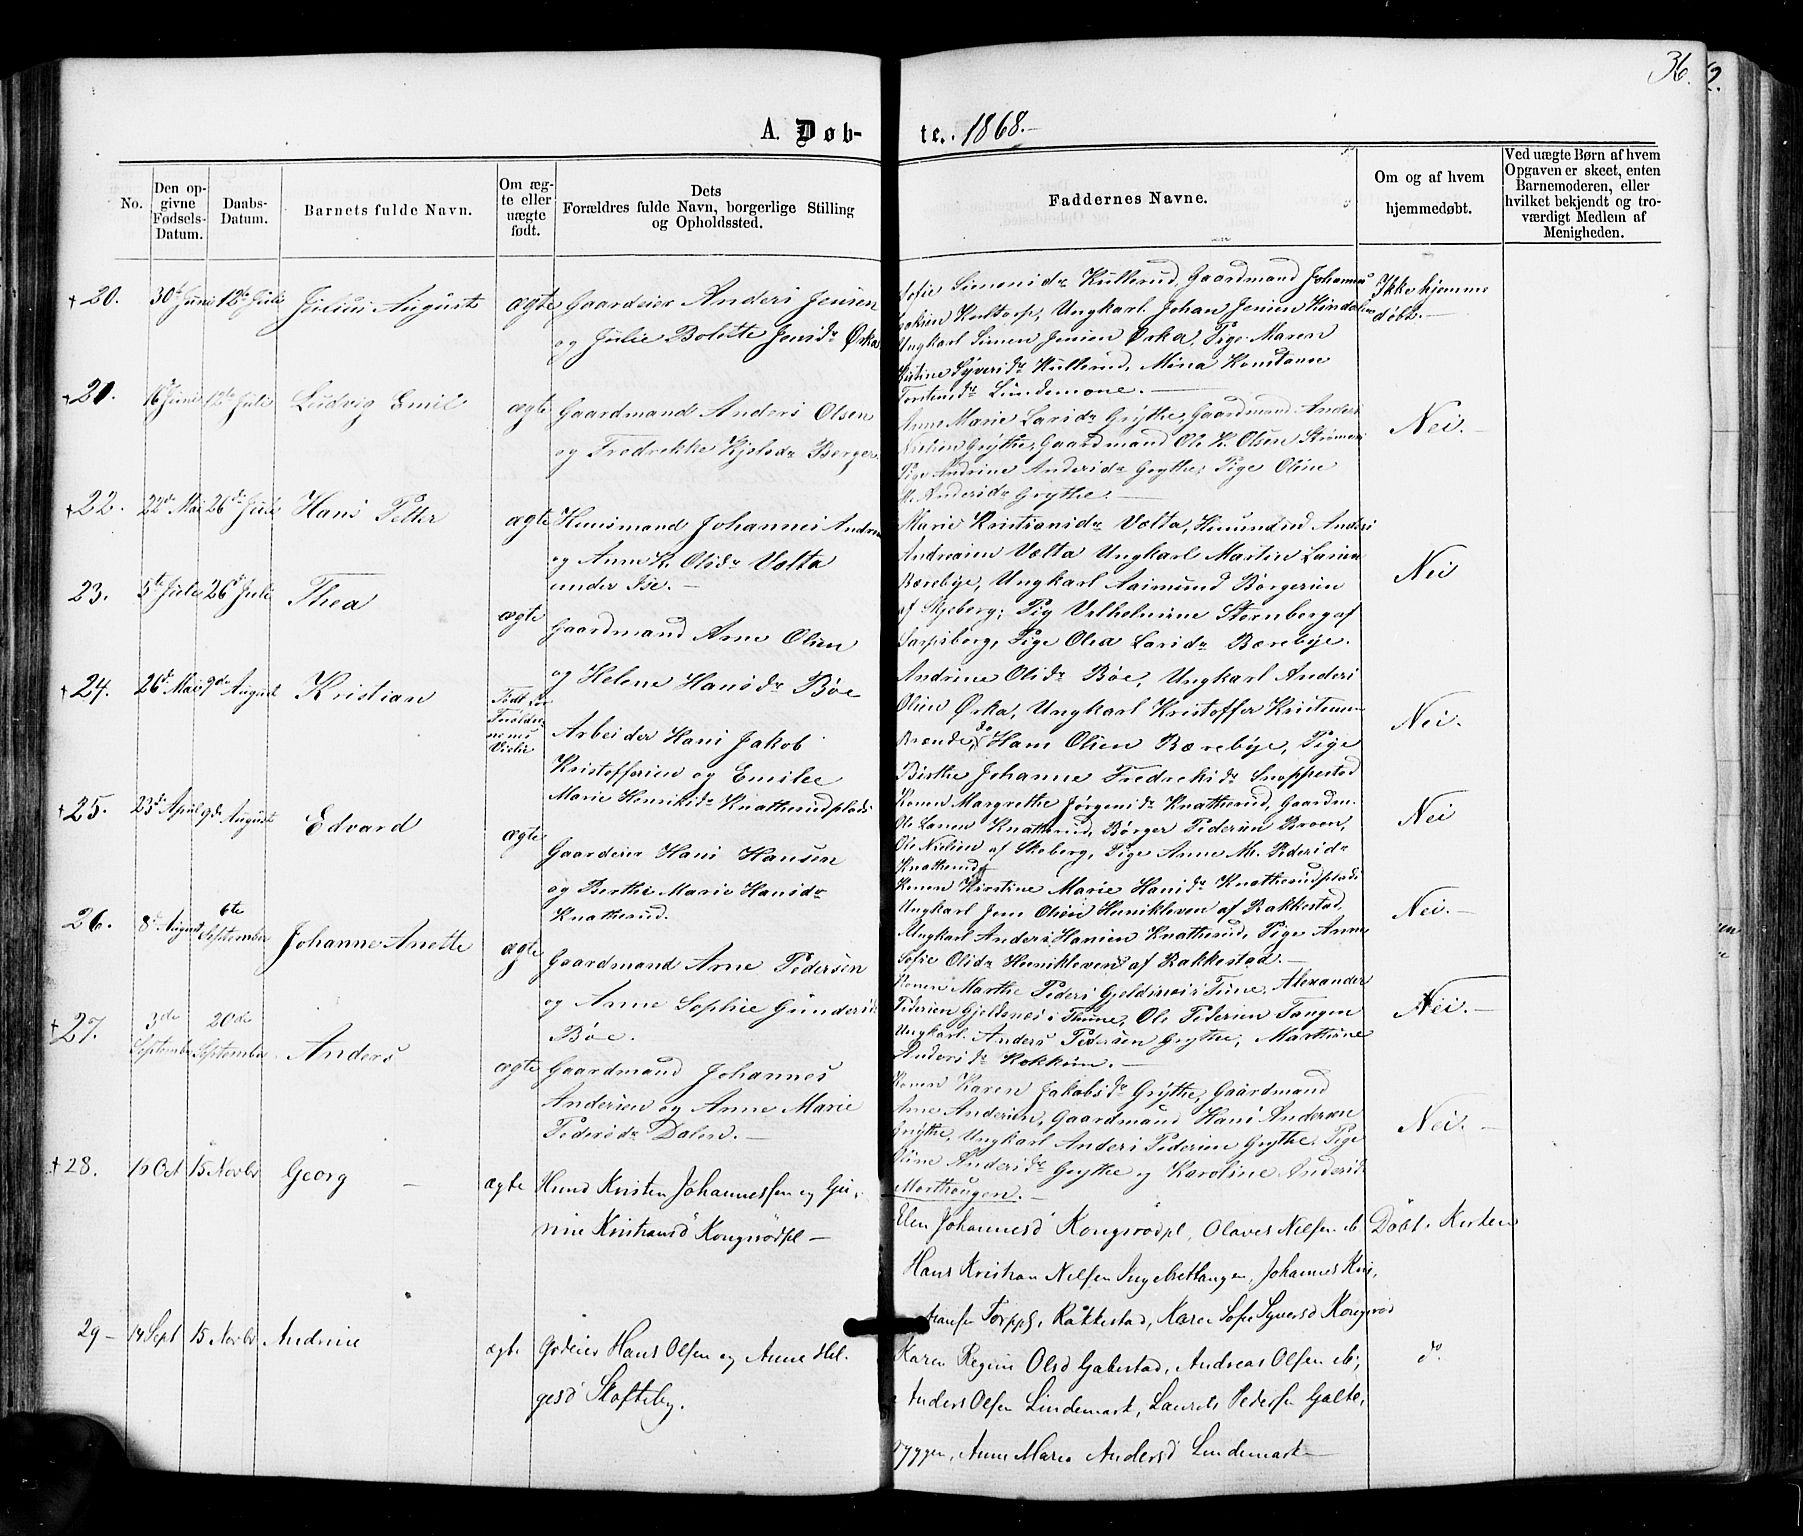 36.
2.
A. Døb- te. 1868.-
No.
Den op-
givne
Fødsels-
Datum.
Daabs-
Datum.
Barnets fulde Navn.
Om æg-
te eller
uægte
født.
Dets
Forældres fulde Navn, borgerlige Stilling
og Opholdssted.
Faddernes Navne.
Om og af hvem
hjemmedøbt.
Ved uægte Børn af hvem
Opgaven er skeet, enten
Barnemoderen, eller
hvilket bekjendt og tro-
værdigt Medlem af
Menigheden.
+20. 30te Juni 12te Juli Julius August ægte Gaardeier Anders Jensen
og Julie Bolette Jensdr Ørka
Sofie Simensdr Kullerud, Gaardmand Johannes
Kultorp, Ungkarl Johan Jensen
Ungkarl Simen Jensen Ørka, Pige Maren
Kirstine Syversdr Kullerud, Mina Konstanse
Torstensdr Lindemone.-
Ikke hjemme
døbt.-
+21. 16de Juni 12te Juli Ludvig Emil ægte Gaardmand Anders Olsen
og Fredrekke Kjelsdr Berger
Anne Marie Larsdr Grythe, Gaardmand Anders
Nielsen Grythe, Gaardmand Ole K. Olsen
Pige Andrine Andersdr Grythe, Pige Oline
M. Andersdr Grythe.-
Nei.-
+22. 22de Mai 26de Juli Hans Petter ægte Huusmand Johannes
og Anne K. Olsdr Vælta
under Ise.-
Marie Kristiansdr Vælta, Huusmd Anders
Andreasen Vælta Ungkarl Martin Larsen
Bærebye, Ungkarl Aasmund Børgersen
af Skjeberg, Pig Vilhelmine Sternberg af
Sarpsborg, Pige Olea Larsdr Bærebye.
Nei
23. 5te Juli 26de Juli Thea ægte Gaardmand Arne Olsen
og Helene Hansdr Bøe
Andrine Olsdr Bøe, Ungkarl Anders
Olsen Ørka, Ungkarl Kristoffer
Brænde, do Hans Olsen Bærebye, Pige
Birthe Johanne Fredriksdr Snoppestad
Nei.
+24. 26de Mai 9de August Kristian Født før
Forældre
nenes
Vielse
Arbeider Hans Jakob
Kristoffersen og Emilie
Marie Henriksdr Knatterudplads
Konen Margrethe Jørgensdr Knatterud, Gaardm.
Ole Larsen Knatterud, Børger Pedersen Broen,
Ole Nielsen af Skeberg, Pige Anne M. Pedersdr
Knatterud
Nei
+25. 23de April 9de August Edvard ægte Gaardeier Hans Hansen
og Berthe Marie Hansdr
Knatterud.
Konen Kirstine Marie Hansdr Knatterudplads
Ungkarl Jens Olsen Henikleven af Rakkestad,
Ungkarl Anders Hansen Knatterud, Pige Anne
Sofie Olsdr Henikleven af Rakkestad.-
Nei.-
26. 8de August 6te September Johanne Anette ægte Gaardmand Arne Pedersen
og Anne Sophie Gundersdr
Bøe.
Konen Marthe Peders Gjeldsnes i Tune, Alexander
Pedersen Gjeldsnes i Thune, Ole Pedersen Tangen
Ungkarl Anders Pedersen Grythe, Marthine
Andersdr Kokkim.-
Nei.-
+27. 3de September 20de September Anders ægte Gaardmand Johannes
Andersen og Anne Marie
Pedersdr Dalen.-
Konen Karen Jakobsdr Grythe, Gaardmand
Arne Andersen, Gaardmand Hans Andersen
Grythe, Ungkarl Anders Pedersen Grythe, Pige
Oline Andersdr Grythe og Karoline Andersdr
Morthaugen.-
Nei.-
+28. 19 Oct 15 Novbr Georg - ægte Hmd Kristen Johannessen og Gu-
nine Kristiansd Kongsrødpl-
Elen Johannesd Kongsrødpl, Olaves Nilsen ib
Hans Kristian Nilsen Ingebrettangen, Johannes Kris-
tiansen Torppl, Rakkestad, Karen Sofie Syversd Kongsrød
Døbt i Kirken
29- 14 Sept 15 Novbr Andrine ægte Gdeier Hans Olsen og Anne Hel-
gesd Skofteby.
Karen Regine Olsd Gabestad, Andreas Olsen ib,
Anders Olsen Lindemark, Laurits Pedersen Galte-
ryggen, Anne Maria Andersd Lindemark-
do.